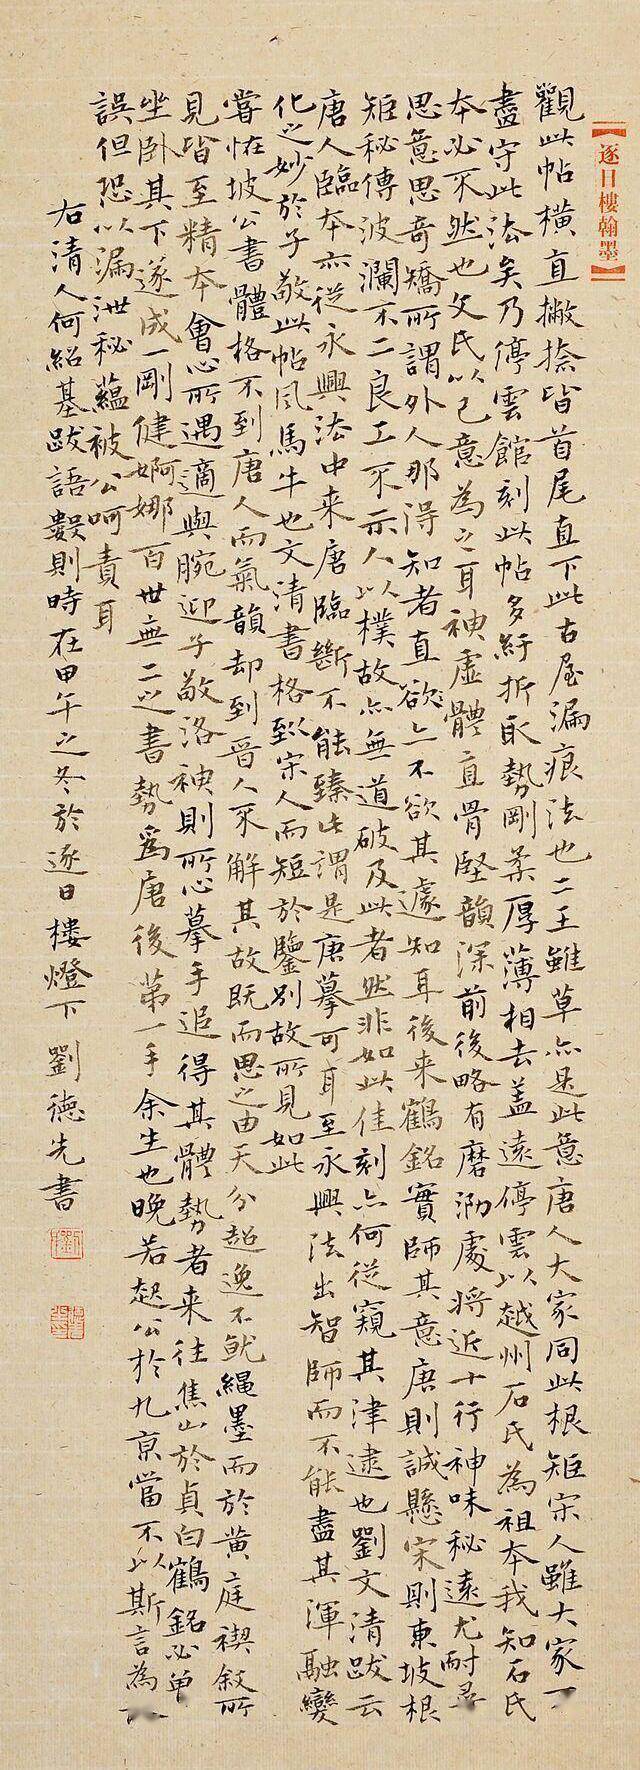 【逐日樓翰墨】
觀此帖橫直撇捺皆首尾直下此古屋漏痕法也二王雖草亦是此意唐人大家同此根矩宋人雖大家不
盡守此法矣乃停雲館刻此帖多紆折取勢剛柔厚薄相去蓋遠停雲以越州石氏為祖本我知石氏
本必不然也文氏以己意為之耳神虛體直骨堅韻深前後略有磨泐處將近十行神味秘遠尤耐尋
思意思奇矯所謂外人那得知者直欲亦不欲其遽知耳後來鶴銘實師其意唐則誠懸宋則東坡根
矩秘傳波瀾不二良工不示人以樸故亦無道破及此者然非如此佳刻亦何從窺其津逮也劉文清跋云
唐人臨本亦從永興法中來唐臨斷不能臻此謂是唐摹可耳至永興法出智師而不能盡其渾融變
化之妙於子敬此帖風馬牛也文清書格到宋人而短於鑒別故所見如此
嘗怪坡公書體格不到唐人而氣韻却到晉人不解其故既而思之由天分超逸不就繩墨而於黃庭禊敘所
見皆至精本會心所遇適與腕迎子敬洛神則所心摹手追得其體勢者來往焦山於貞白鶴銘必單
坐卧其下遂成一剛健婀娜百世無二之書勢為唐後第一手余生也晚若起公於九京當不以斯言為
誤但恐以漏泄秘蘊被公呵責耳
右清人何紹基跋語數則時在甲午之冬於逐日樓燈下劉德先書